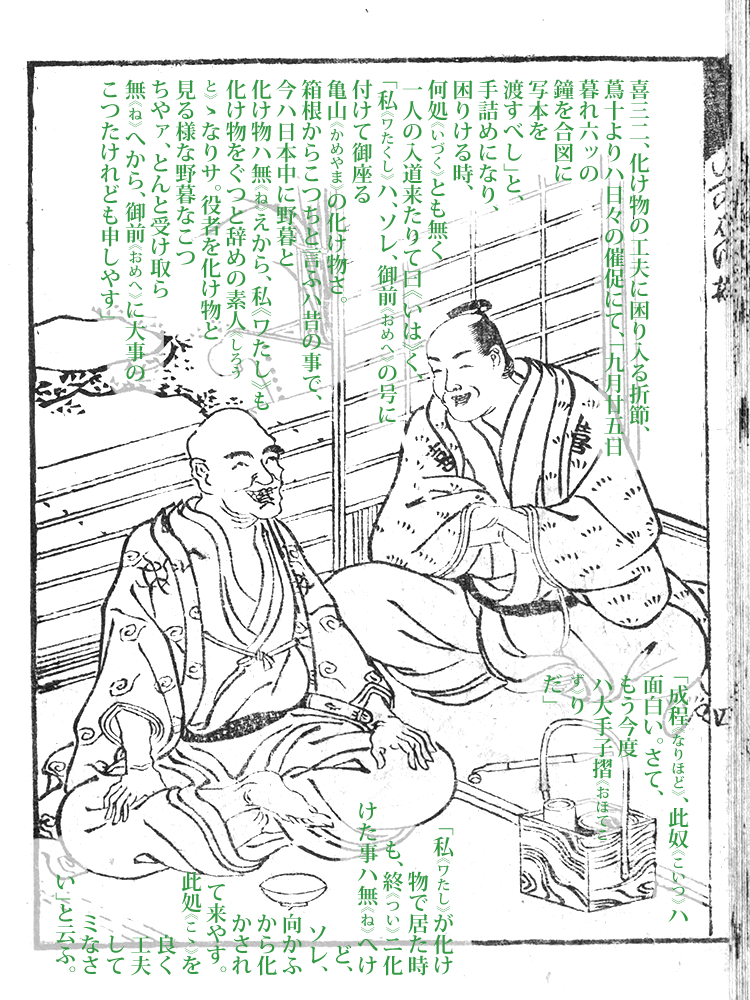 喜三二、化け物の工夫に困り入る折節、
蔦十よりハ日々の催促にて、「九月廿五日
暮れ六ッの
鐘を合図に
写本を
渡すべし」と、
手詰めになり、
困りける時、
何処《いづく》とも無く
一人の入道来たりて曰《いは》く、
「私《ワたくし》ハ、ソレ、御前《おめへ》の号に
付けて御座る
亀山《かめやま》の化け物さ。
箱根からこつちと言ふハ昔の事で、
今ハ日本中に野暮と
化け物ハ無《ね》えから、私《ワたし》も
化け物をぐつと辞めの素人《しろう
と》ゝなりサ。役者を化け物と
見る様な野暮なこつ
ちやァ、とんと受け取ら
無《ね》へから、御前《おめへ》に大事の
こつたけれども申しやす」
「成程《なりほど》、此奴《こいつ》ハ
面白い。さて、
もう今度
ハ大手子摺《おほてこ
ず》り
だ」
「私《ワたし》が化け
物で居た時
も、終《つい》ニ化
けた事ハ無《ね》へけ
ど、
ソレ、
向かふ
から化
かされ
て来やす。
此処《こゝ》を
良く
工夫
して
ミなさ
い」と云ふ。
喜